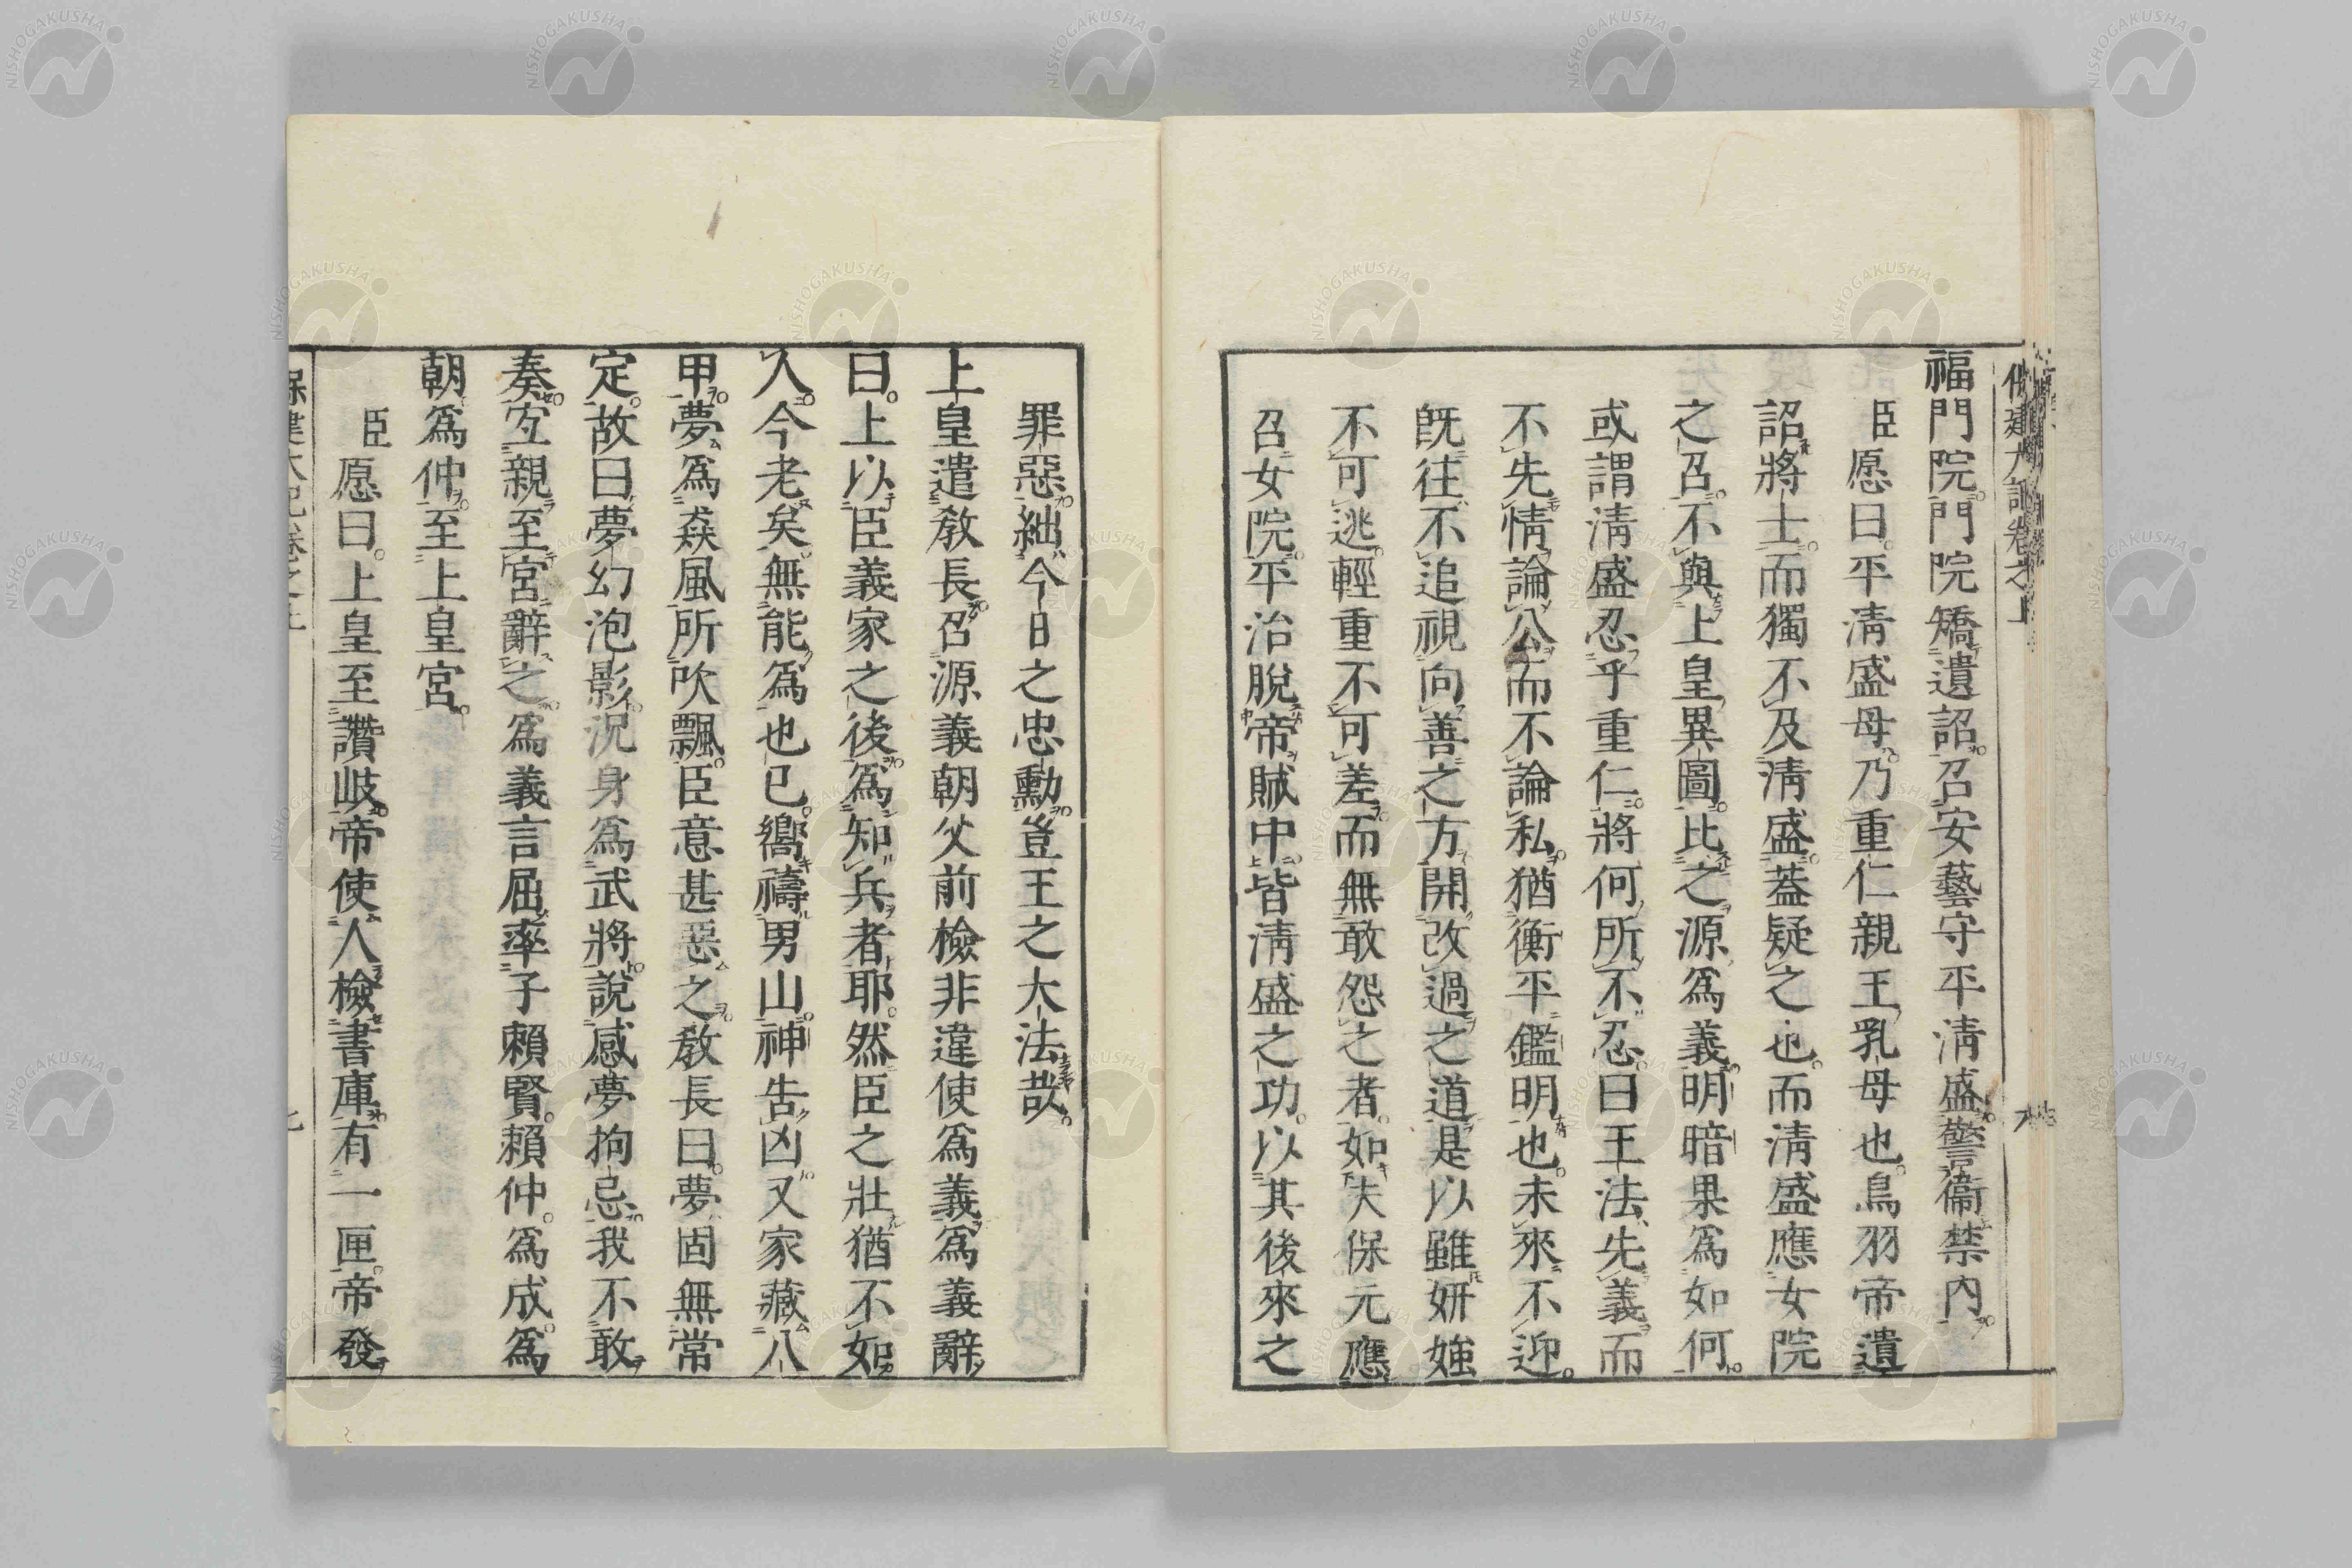 福門院門院矯遺詔召安藝守平淸盛警衞禁內
臣愿曰平淸盛母乃重仁親王乳母也鳥羽帝遺
詔將士而獨不及淸盛葢疑之也而淸盛應女院
之召不與上皇異圖比之源爲義明暗果爲如何
或謂淸盛忍乎重仁將何所不忍曰王法先義而
不先情論公而不論私猶衡平鑑明也未來不迎
旣往不追視向善之方開改過之道是以雖妍媸
不可逃輕重不可差而無敢怨之者如夫保元應
召女院平治脫帝賊中皆淸盛之功以其後來之
罪惡絀今日之忠勳豈王之大法哉
上皇遣敎長召源義朝父前檢非違使爲義爲義辭
曰上以臣義家之後爲知兵者耶然臣之壯猶不如
人今老矣無能爲也已嚮禱男山神告凶又家藏八
甲夢爲猋風所吹飄臣意甚惡之敎長曰夢固無常
定故曰夢幻泡影況身爲武將說感夢拘忌我不敢
奏宐親至宮辭之爲義言屈率子賴賢賴仲爲成爲
朝爲仲至上皇宮
臣愿曰上皇至讚岐帝使人檢書庫有一匣帝發
保建大記卷之上
NISHOGAKUSHA